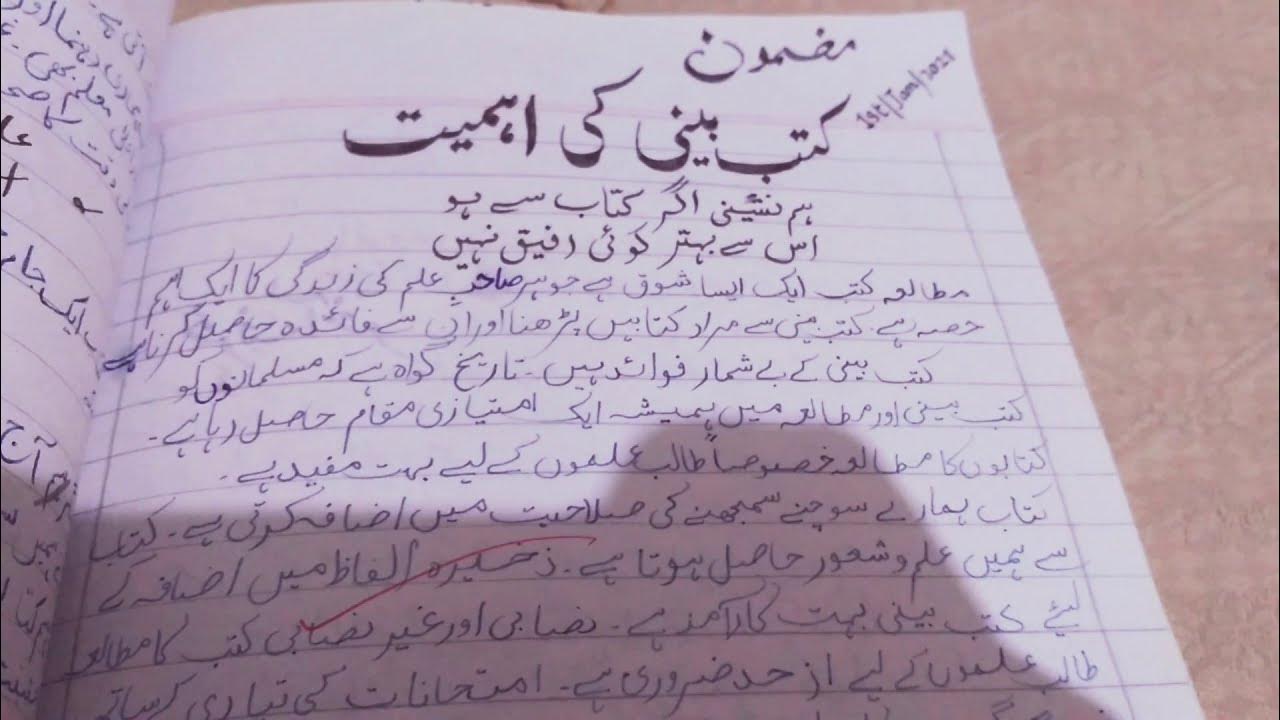 مضمون
1st/Jan/2021
کتب بینی کی اہمیت
ہم نشینی اگر کتاب سے ہو
اس سے بہتر کوئی رفیق نہیں
مطالعہ کتب ایک ایسا شوق ہے جو ہر صاحبِ علم کی زندگی کا ایک اہم
حصہ ہے۔ کتب بینی سے مراد کتابیں پڑھنا اور ان سے فائدہ حاصل کرنا ہے
کتب بینی کے بے شمار فوائد ہیں۔ تاریخ گواہ ہے کہ مسلمانوں کو
کتب بینی اور مطالعہ میں ہمیشہ ایک امتیازی مقام حاصل رہا ہے۔
کتابوں کا مطالعہ خصوصاً طالب علموں کے لیے بہت مفید ہے۔
کتاب ہمارے سوچنے سمجھنے کی صلاحیت میں اضافہ کرتی ہے۔ کتاب
سے ہمیں علم و شعور حاصل ہوتا ہے۔ ذخیرہ الفاظ میں اضافہ کے
لیئے کتب بینی بہت کارآمد ہے۔ نصابی اور غیر نصابی کتب کا مطالعہ
طالب علموں کے لیے از حد ضروری ہے۔ امتحانات کی تیاری کے ساتھ